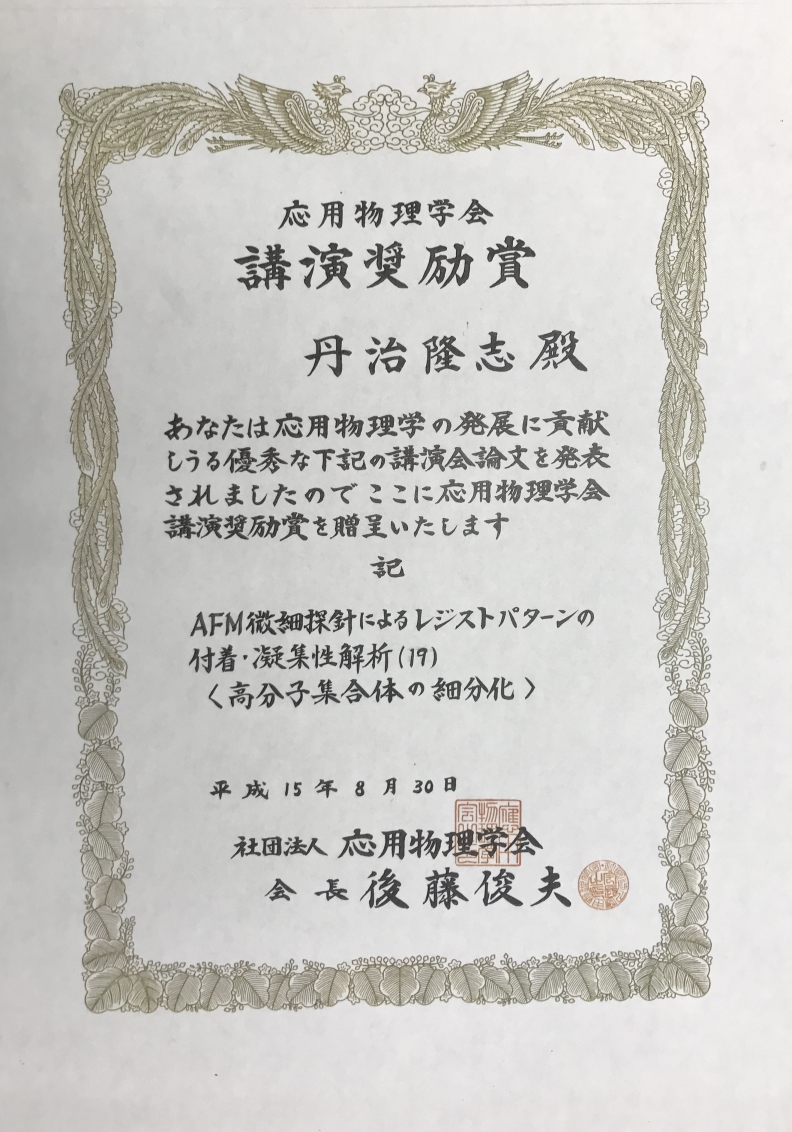 応用物理学会
講演奨励賞
丹治隆志殿
あなたは応用物理学の発展に貢献
しうる優秀な下記の講演会論文を発表
されましたのでここに応用物理学会
講演奨励賞を贈呈いたします
記
AFM微細探針によるレジストパターンの
付着・凝集性解析(19)
〈高分子集合体の細分化〉
平成15年8月30日
社団法人 応用物理学会
会長 後藤俊夫